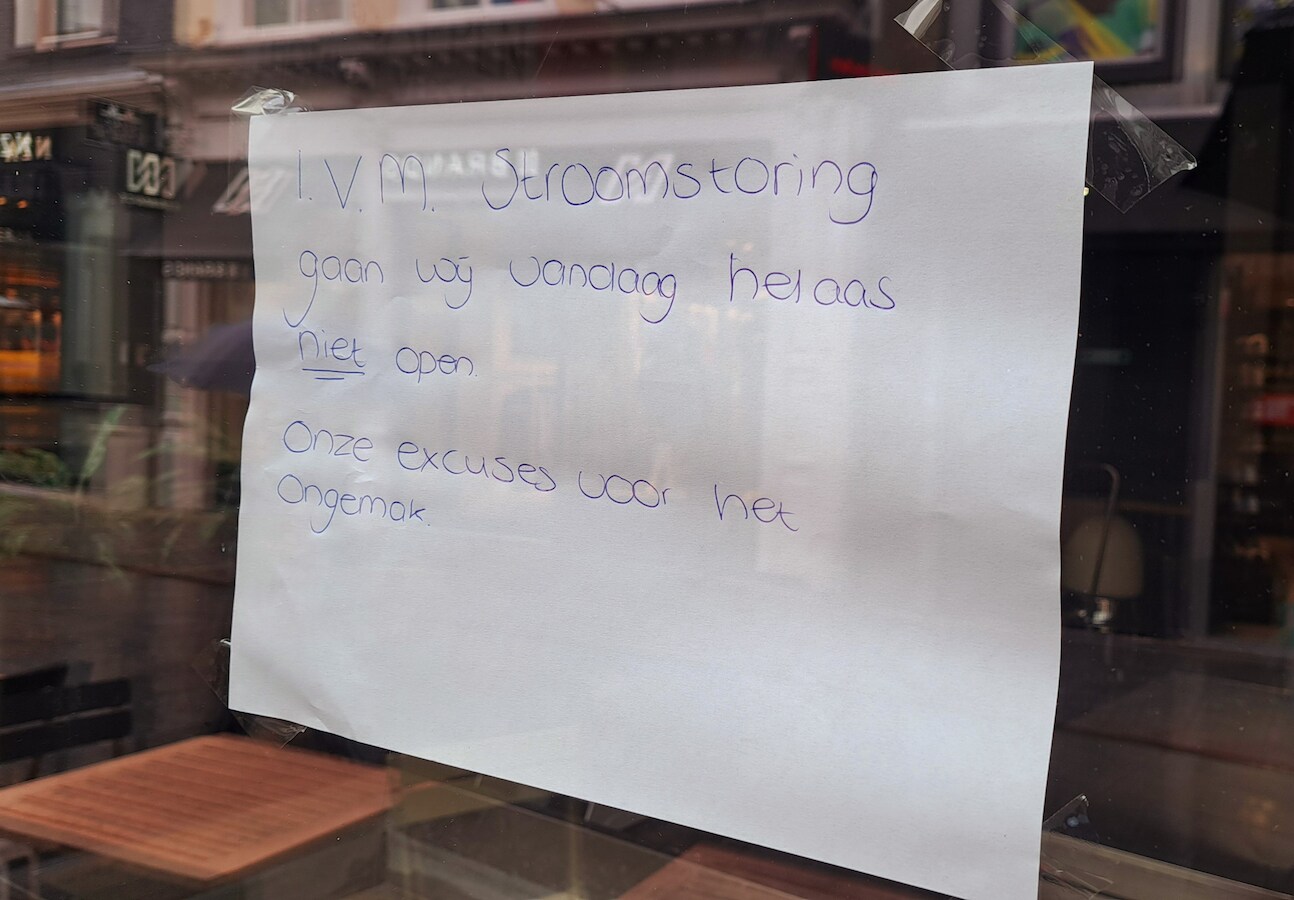 I.V.M. Stroomstoring
gaan wij vandaag helaas
niet open.
Onze excuses voor het
Ongemak.